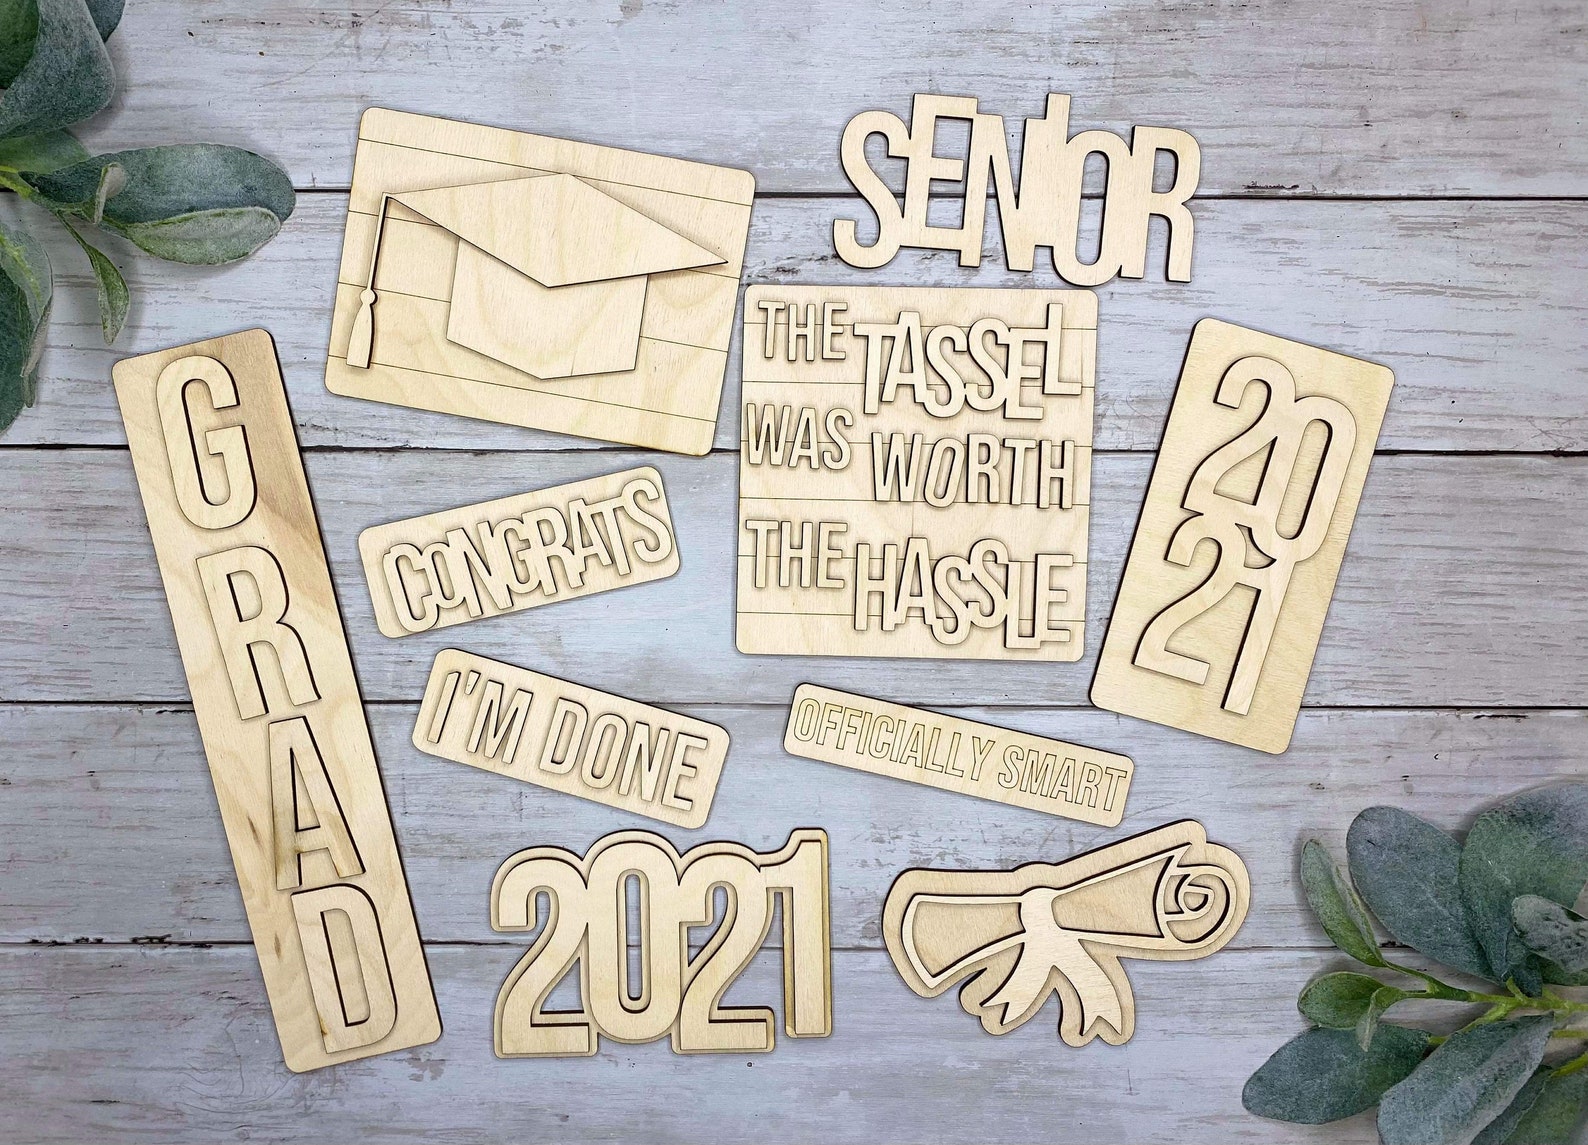 SENIOR
THE TASSEL
WAS WORTH
THE HASSLE
20
21
GRAD
CONGRATS
I'M DONE
OFFICIALLY SMART
2021